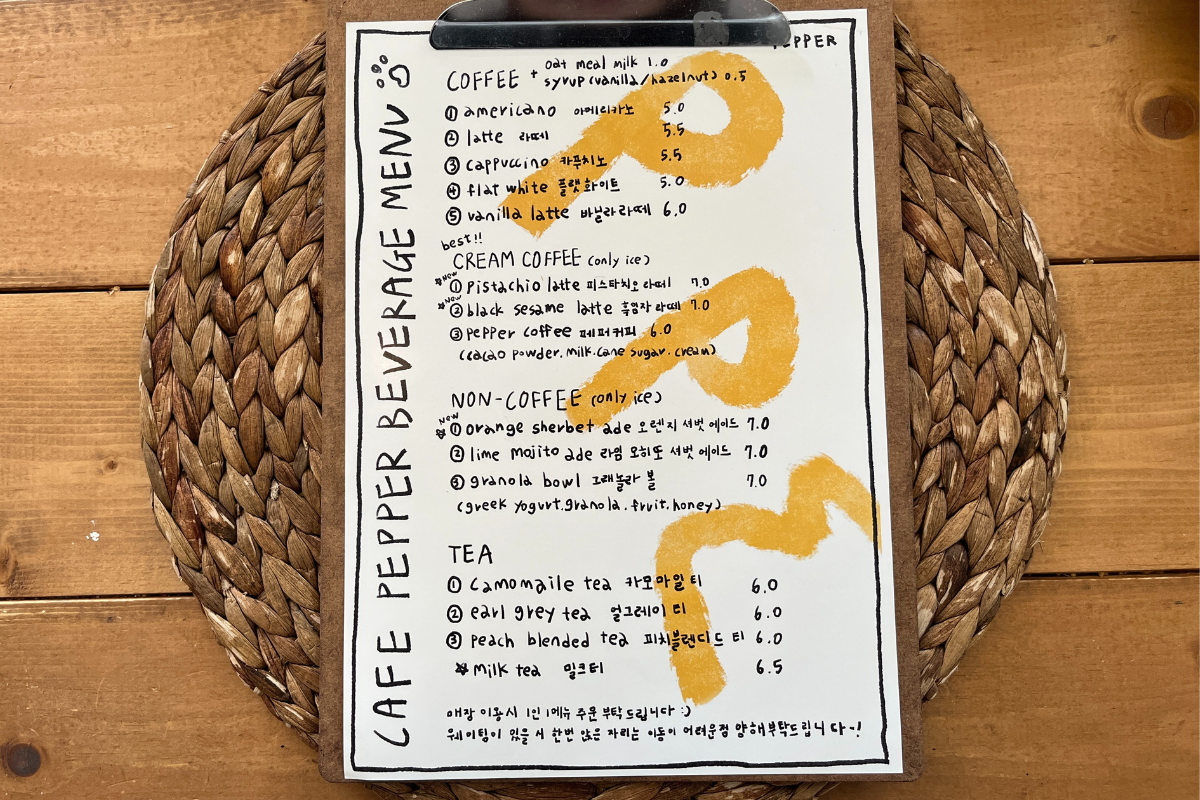 PEPPER
CAFE PEPPER BEVERAGE MENU
COFFEE + oat meal milk 1.0
syrup (vanilla/hazelnut) 0.5
① americano 아메리카노 5.0
② latte 라떼 5.5
③ cappuccino 카푸치노 5.5
④ flat white 플랫화이트 5.0
⑤ vanilla latte 바닐라라떼 6.0
best!!
CREAM COFFEE (only ice)
New ① pistachio latte 피스타치오 라떼 7.0
New ② black sesame latte 흑임자 라떼 7.0
③ pepper coffee 페퍼커피 6.0
(cacao powder. milk. cane sugar. cream)
NON-COFFEE (only ice)
New ① orange sherbet ade 오렌지 셔벗 에이드 7.0
② lime mojito ade 라임 모히또 셔벗 에이드 7.0
③ granola bowl 그래놀라 볼 7.0
(greek yogurt.granola.fruit.honey)
TEA
① camomaile tea 카모마일 티 6.0
② earl grey tea 얼그레이 티 6.0
③ peach blended tea 피치블렌디드 티 6.0
milk tea 밀크티 6.5
매장 이용시 1인 1메뉴 주문 부탁드립니다 :)
웨이팅이 있을 시 한번 앉은 자리는 이동이 어려운점 양해부탁드립니다~!